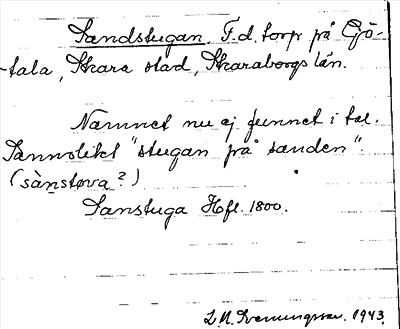 Sandstugan. F.d. torp på Gö-
tala, Skara stad, Skaraborgs län.
Namnet nu ej funnet i tal.
Sannolikt "stugan på sanden".
(sànstøva?)
Sanstuga Hfl. 1800.
1943.